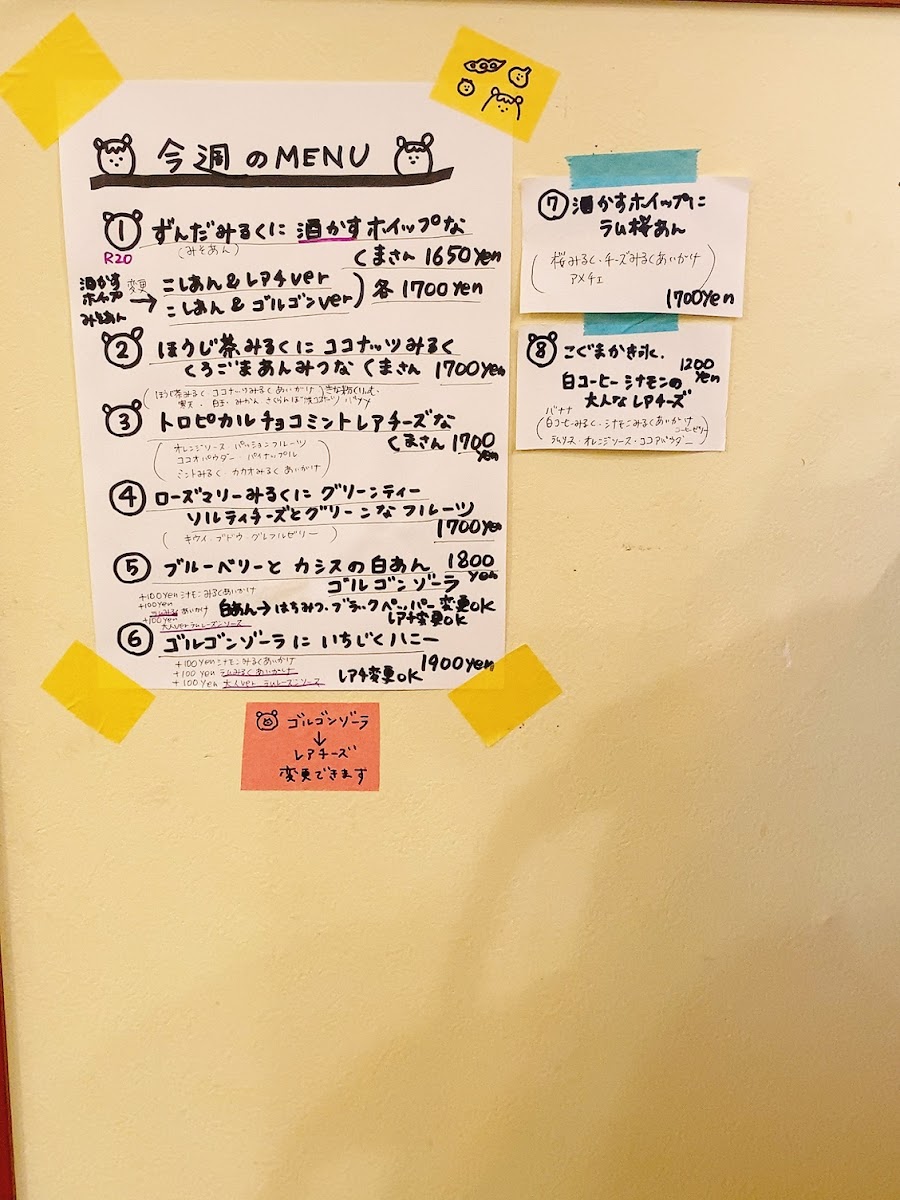 今週のMENU
① ずんだみるくに 酒かすホイップな
(みそあん)
くまさん 1650yen
R20
酒かす
ホイップ
みそあん
変更
→
こしあん&レアチver
こしあん&ゴルゴンver
各 1700yen
② ほうじ茶みるくに ココナッツみるく
くろごまあんみつな くまさん 1700yen
(ほうじ茶みるく・ココナツみるく あいがけ)
寒天・白玉・みかん さくらんぼ
バナナ
③ トロピカルチョコミントレアチーズな
くまさん 1700yen
(オレンジソース・パッションフルーツ
ココアパウダー・パイナップル
ミントみるく・カカオみるく あいがけ)
④ ローズマリーみるくに グリーンティー
ソルティチーズとグリーンな フルーツ
1700yen
(キウイ・ブドウ・グレフルゼリー)
⑤ ブルーベリーと カシスの白あん 1800yen
ゴルゴンゾーラ
+100yen シナモンみるくあいがけ
+100yen
ラムみるくあいがけ
+100yen
大人verラムレーズンソース
白あん→はちみつ・ブラックペッパー変更OK
レアチ変更OK
⑥ ゴルゴンゾーラに いちじくハニー
1900yen
+100yen シナモンみるくあいがけ
+100yen ラムみるくあいがけ
+100yen 大人ver ラムレーズンソース
レアチ変更OK
ゴルゴンゾーラ
↓
レアチーズ
変更できます
⑦ 酒かすホイップに
ラム桜あん
(桜みるく・チーズみるくあいがけ
アメチェ)
1700yen
⑧ こぐまかき氷.
1200yen
白コーヒーシナモンの
大人なレアチーズ
バナナ
(白コーヒーみるく・シナモンみるくあいがけ
コーヒーゼリー
ラムソース・オレンジソース・ココアパウダー)